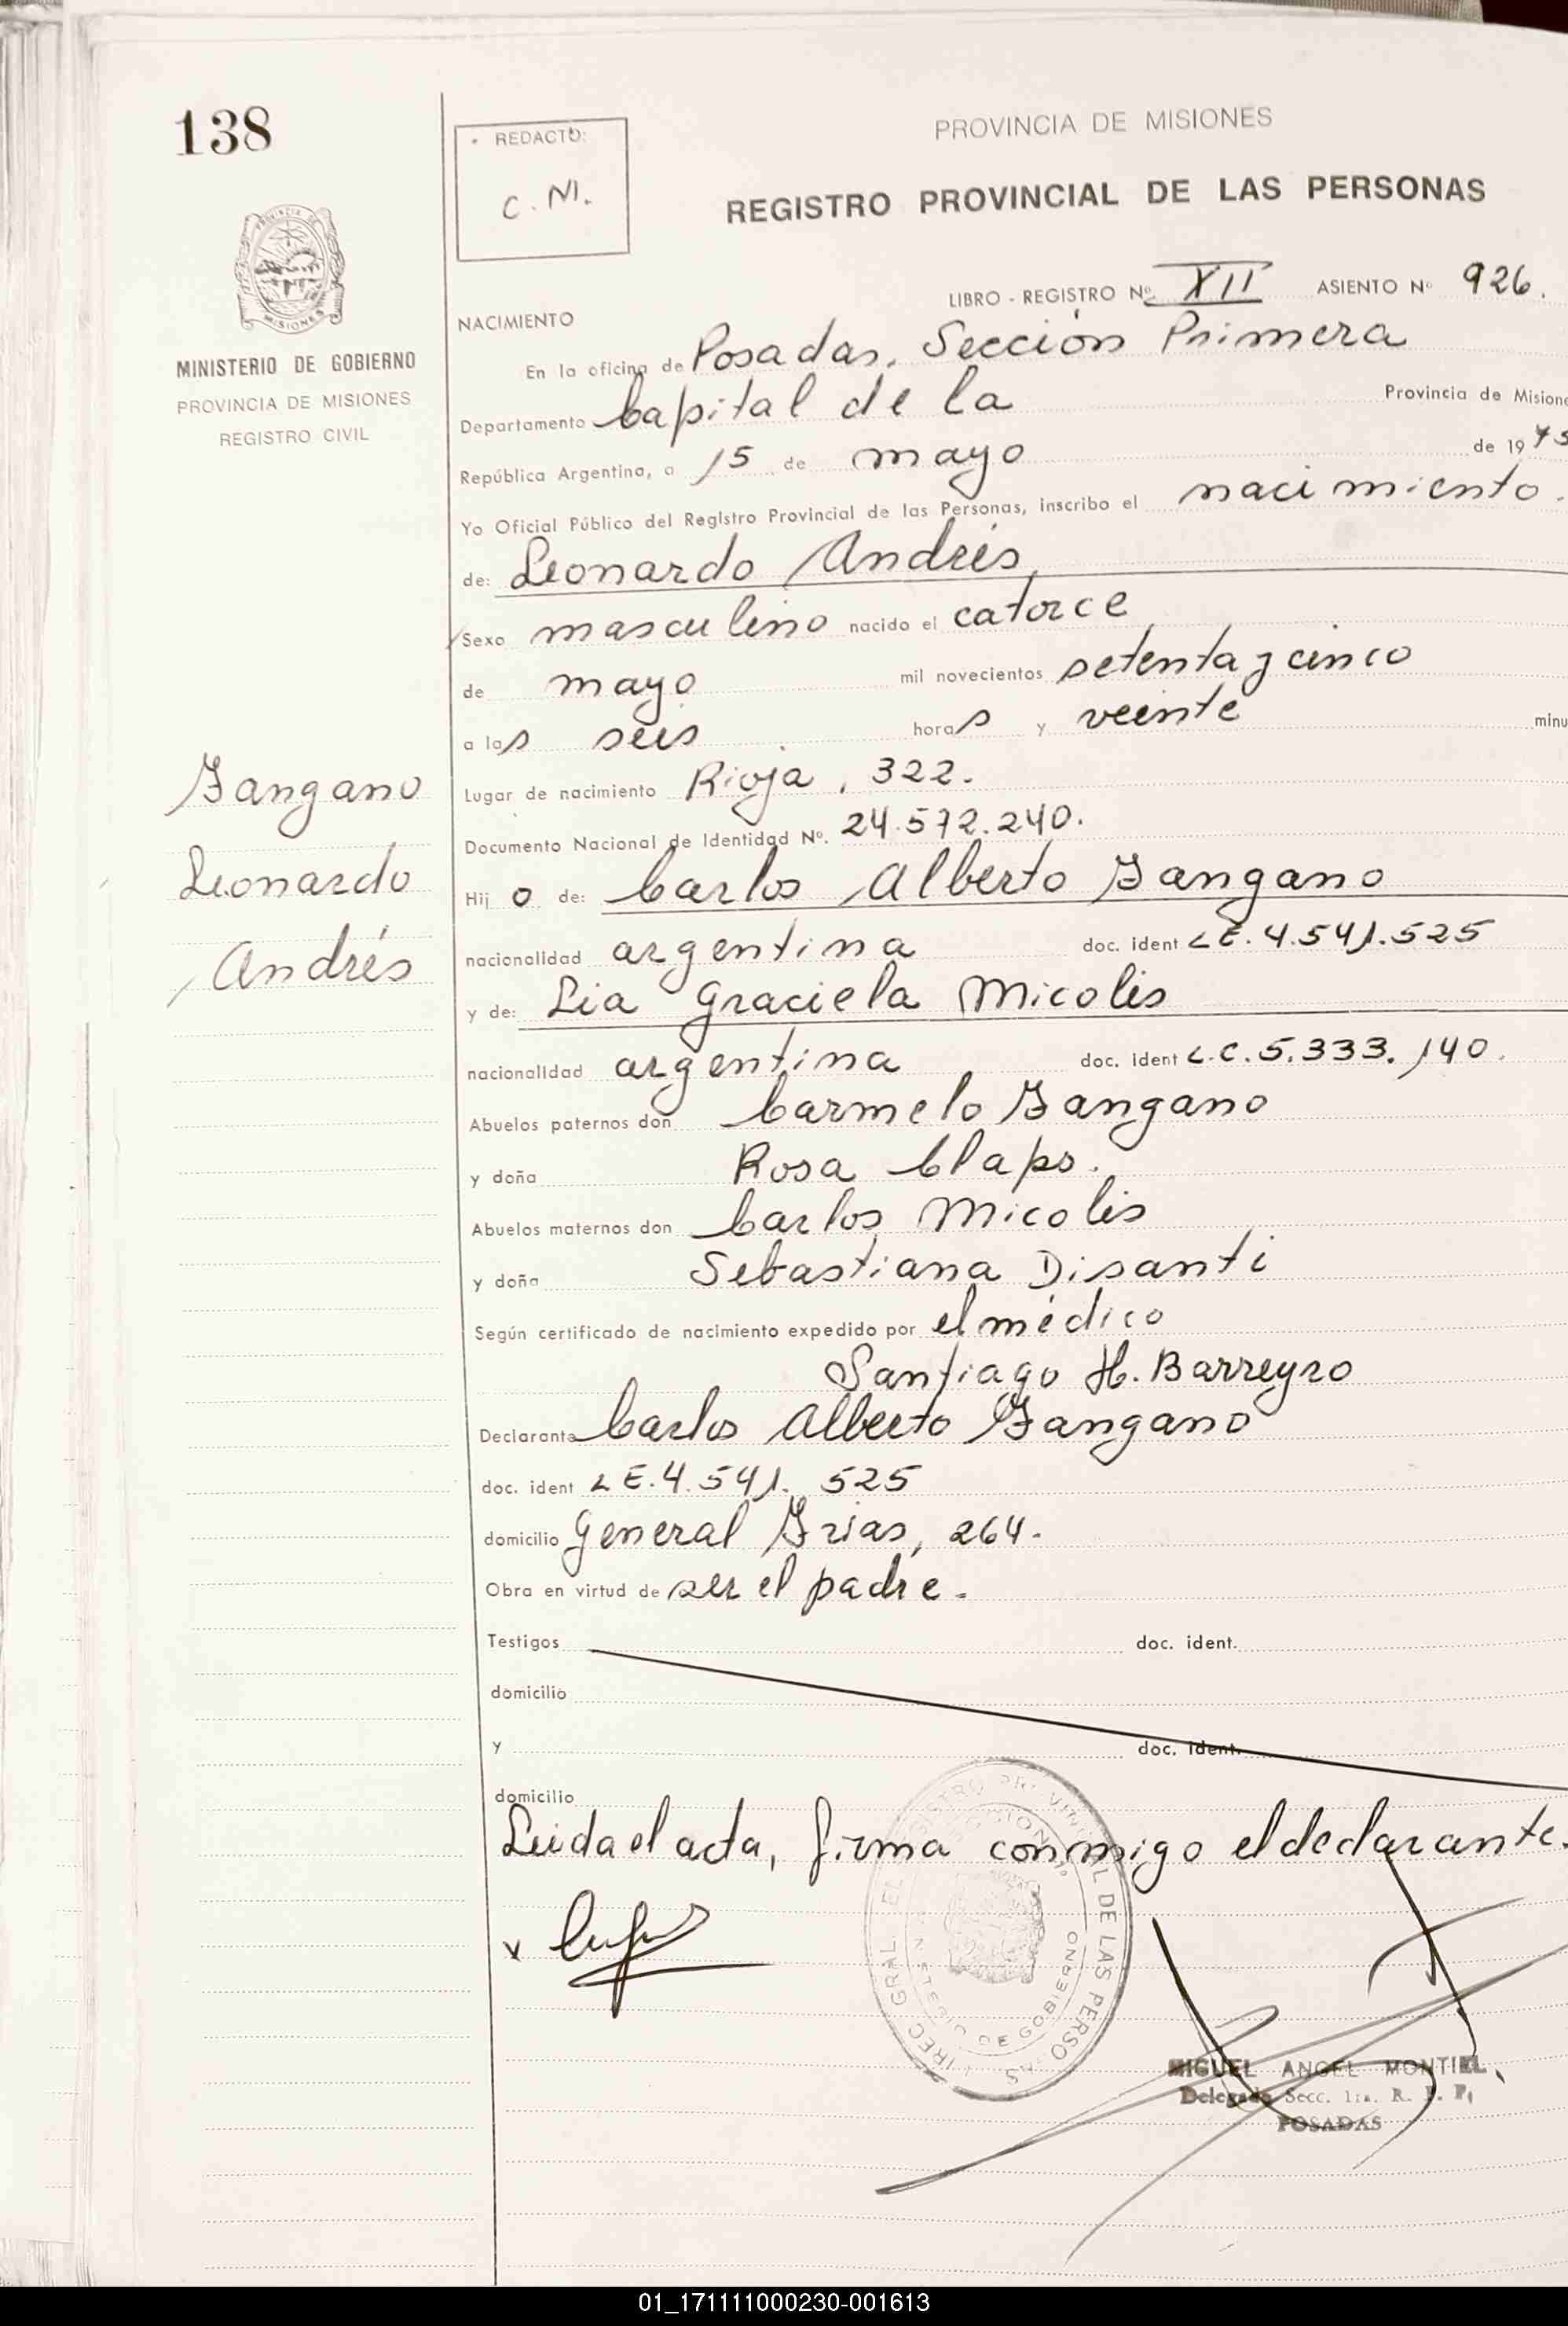 138
REDACTÓ:
C. M.
PROVINCIA DE MISIONES
REGISTRO PROVINCIAL DE LAS PERSONAS
LIBRO - REGISTRO Nº XII ASIENTO Nº 926.
MINISTERIO DE GOBIERNO
PROVINCIA DE MISIONES
REGISTRO CIVIL
NACIMIENTO
En la oficina de Posadas, Sección Primera
Departamento Capital de la Provincia de Misione
República Argentina, a 15 de mayo de 1975
Yo Oficial Público del Registro Provincial de las Personas, inscribo el nacimiento.
de: Leonardo Andrés,
Sexo masculino nacido el catorce
de mayo mil novecientos setenta y cinco
a las seis horas y veinte minu
Zangano
Leonardo
Andrés
Lugar de nacimiento Rioja, 322.
Documento Nacional de Identidad Nº. 24.572.240.
Hijo de: Carlos Alberto Zangano
nacionalidad argentina doc. ident L.E. 4.541.525
y de: Lia Graciela Micolis
nacionalidad argentina doc. ident L.C. 5.333.140.
Abuelos paternos don Carmelo Zangano
y doña Rosa Claps.
Abuelos maternos don Carlos Micolis
y doña Sebastiana Disanti
Según certificado de nacimiento expedido por el médico
Santiago H. Barreyro
Declarante Carlos Alberto Zangano
doc. ident L.E. 4.541.525
domicilio General Frias, 264.
Obra en virtud de ser el padre.
Testigos doc. ident.
domicilio
y doc. ident.
domicilio
Leida el acta, firma conmigo el declarante.
MIGUEL ANGEL MONTIEL
Delegado Secc. 1ra. R. P. P.
POSADAS
01_171111000230-001613